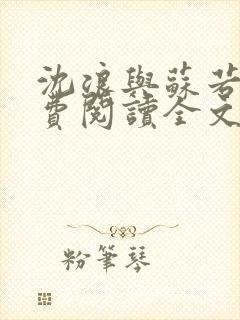 沈浪與蘇若
費閱讀全文
粉筆琴